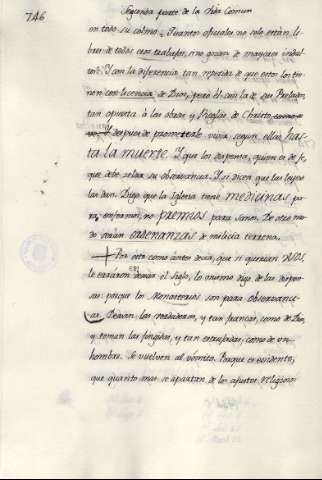 746
Segunda parte de la Vida Comun
en todo su colmo. Quantos oficiales no solo están li-
bres de todos esos trabajos, sino gozan de mayores indul-
tos? Y con la diferencia tan notoria de que estos los tie-
nen con licencia de Dios, pero el con la de sus Prelados,
tan opuesta à las obras y Reglas de Christo
y despues de prometerle vivir segun ellas has-
ta la muerte. Y que los dispensa, quien es de fe
que debe zelar su observancia. Y si dicen que las leyes
las dan. Digo que la Iglesia tiene medicinas pa-
ra enfermos, no premios para sanos. De otro mo-
do serian ordenanzas de milicia terrena.
Por esto como antes decia, que si querian
lo mismo digo de las dispen-
sas: porque los Monasterios son para observanci-
as. Dexan las verdaderas, y tan francas, como de Dios,
y toman las fingidas, y tan estrujadas, como de un
hombre. Se vuelven al vómito. Porque es evidente,
que quanto mas se apartan de los ajustes Religiosos